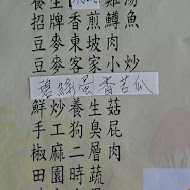 養生
雞湯
招牌香煎鱒魚
豆麥東坡肉
豆麥客家小炒
香苦瓜
鮮炒養生菇
手工狗臭屁
椒麻二層肉
田園時蔬